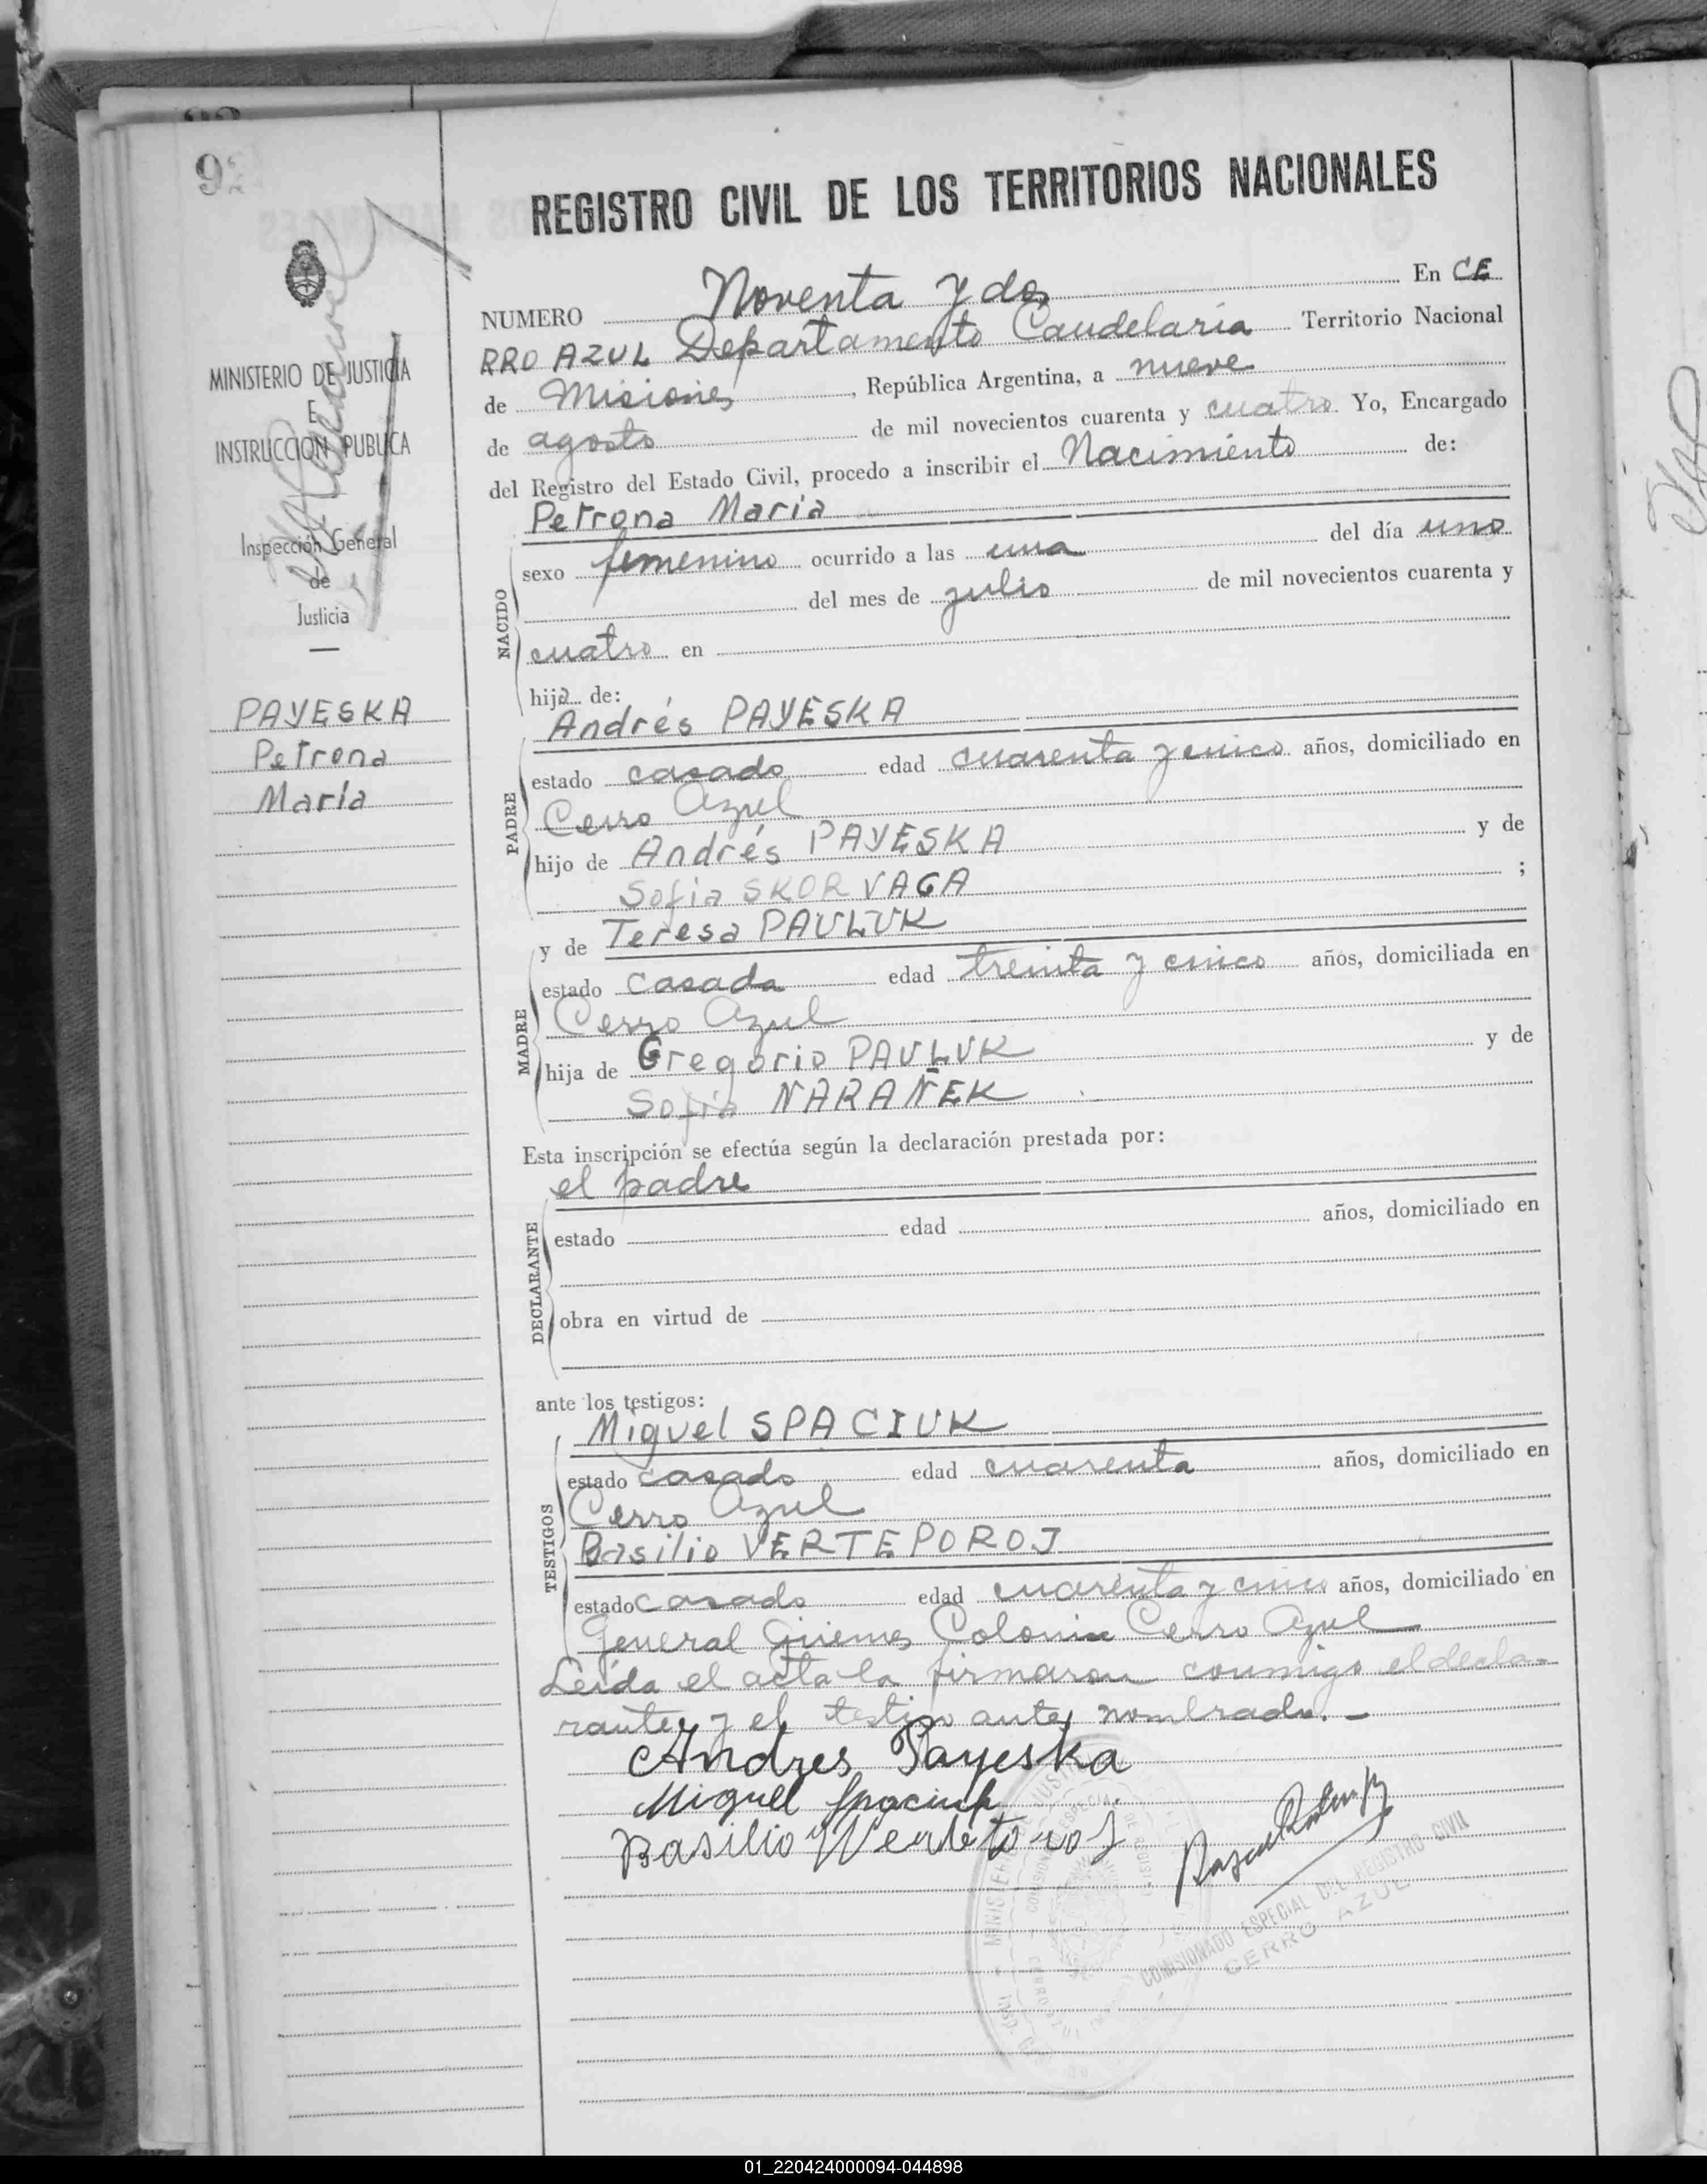 92
REGISTRO CIVIL DE LOS TERRITORIOS NACIONALES
NUMERO Noventa y dos En CE
RRO AZUL Departamento Candelaria Territorio Nacional
de Misiones, República Argentina, a nueve
de agosto de mil novecientos cuarenta y cuatro Yo, Encargado
del Registro del Estado Civil, procedo a inscribir el Nacimiento de:
MINISTERIO DE JUSTICIA
E
INSTRUCCION PUBLICA
Inspección General
de
Justicia
PAYESKA
Petrona
María
NACIDO
Petrona María
sexo femenino ocurrido a las una del día uno
del mes de julio de mil novecientos cuarenta y
cuatro en
hija de:
PADRE
Andrés PAYESKA
estado casado edad cuarenta y cinco años, domiciliado en
Cerro Azul
hijo de Andrés PAYESKA y de
Sofia SKORVAGA ;
MADRE
y de Teresa PAULUK
estado casada edad treinta y cinco años, domiciliada en
Cerro Azul
hija de Gregorio PAULUK y de
Sofia NARAÑEK
Esta inscripción se efectúa según la declaración prestada por:
DECLARANTE
el padre
estado edad años, domiciliado en
obra en virtud de
ante los testigos:
TESTIGOS
Miguel SPACIUK
estado casado edad cuarenta años, domiciliado en
Cerro Azul
Basilio VERTEPOROJ
estado casado edad cuarenta y cinco años, domiciliado en
General Güemes Colonia Cerro Azul
Leída el acta la firmaron conmigo el decla-
rante y el testigo antes nombrado. -
Andres Payeska
Miguel Spaciuk
Basilio
COMISIONADO ESPECIAL DEL REGISTRO CIVIL
CERRO AZUL
01_220424000094-044898